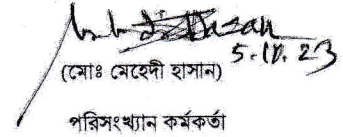 5.10.23
(মোঃ মেহেদী হাসান)
পরিসংখ্যান কর্মকর্তা